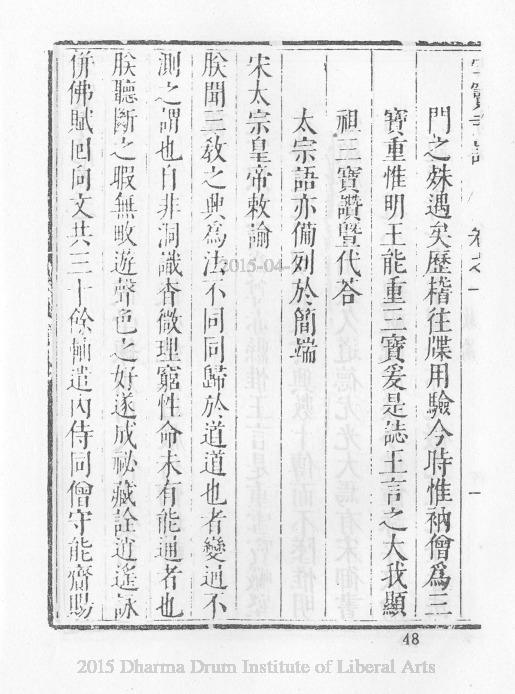 門之殊遇矣歷稽往牒用驗今時惟衲僧爲三
寶重惟明王能重三寶爰是誌王言之大我顯
祖三寶讚曁代荅
太宗語亦備列於簡端
宋太宗皇帝敕諭
朕聞三敎之興爲法不同同歸於道道也者變通不
測之謂也自非洞識杳微理窮性命未有能通者也
朕聽斷之暇無畋遊聲色之好遂成祕藏詮逍遙詠
併佛賦回向文共三十餘軸遣內侍同僧守能齎賜
48
2015-04-
2015 Dharma Drum Institute of Liberal Arts